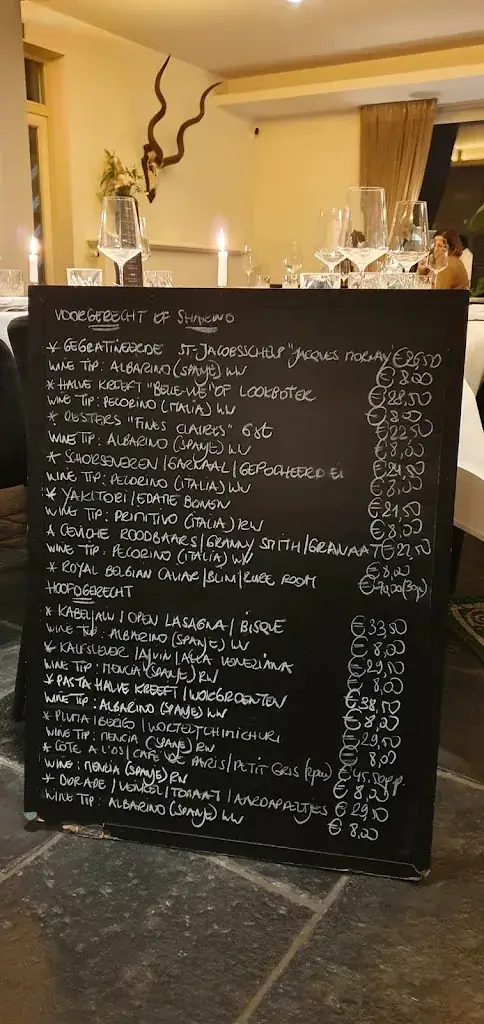 VOORGERECHT OF SHARING
* GEGRATINEERDE ST-JACOBSSCHELP "JACQUES MORNAY" €26,50
WINE TIP: ALBARINO (SPANJE) WW €8,00
* HALVE KREEFT "BELLE-VUE" OF LOOKBOTER €28,50
WINE TIP: PECORINO (ITALIA) WW €8,00
* OESTERS "FINES CLAIRES" 6st €22,50
WINE TIP: ALBARINO (SPANJE) WW €8,00
* SCHORSENEREN / GARNAAL / GEPOCHEERD EI €24,50
WINE TIP: PECORINO (ITALIA) WW €8,00
* YAKITORI / EDAME BONEN €21,50
WINE TIP: PRIMITIVO (ITALIA) RW €8,00
* CEVICHE ROODBAARS / GRANNY SMITH / GRANAAT €22,50
WINE TIP: PECORINO (ITALIA) WW €8,00
* ROYAL BELGIAN CAVIAR / BLINI / ZURE ROOM
HOOFDGERECHT
* KABELJAUW / OPEN LASAGNA / BISQUE €33,50
WINE TIP: ALBARINO (SPANJE) WW €8,00
* KALFSLEVER / AJUIN / ALLA VENEZIANA €29,50
WINE TIP: MENCIA (SPANJE) RW €8,00
* PASTA HALVE KREEFT / WOKGROENTEN €38,50
WINE TIP: ALBARINO (SPANJE) WW €8,00
* PLUMA / IBERICO / WORTEL / CHIMICHURI €29,50
WINE TIP: MENCIA (SPANJE) RW €8,00
* COTE A L'OS / CAFE DE PARIS / PETIT GRIS (2pers) €45,50pp.
WINE: MENCIA (SPANJE) RW €8,00
* DORADE / VENKEL / TOMAAT / AARDAPPELTJES €29,50
WINE TIP: ALBARINO (SPANJE) WW €8,00